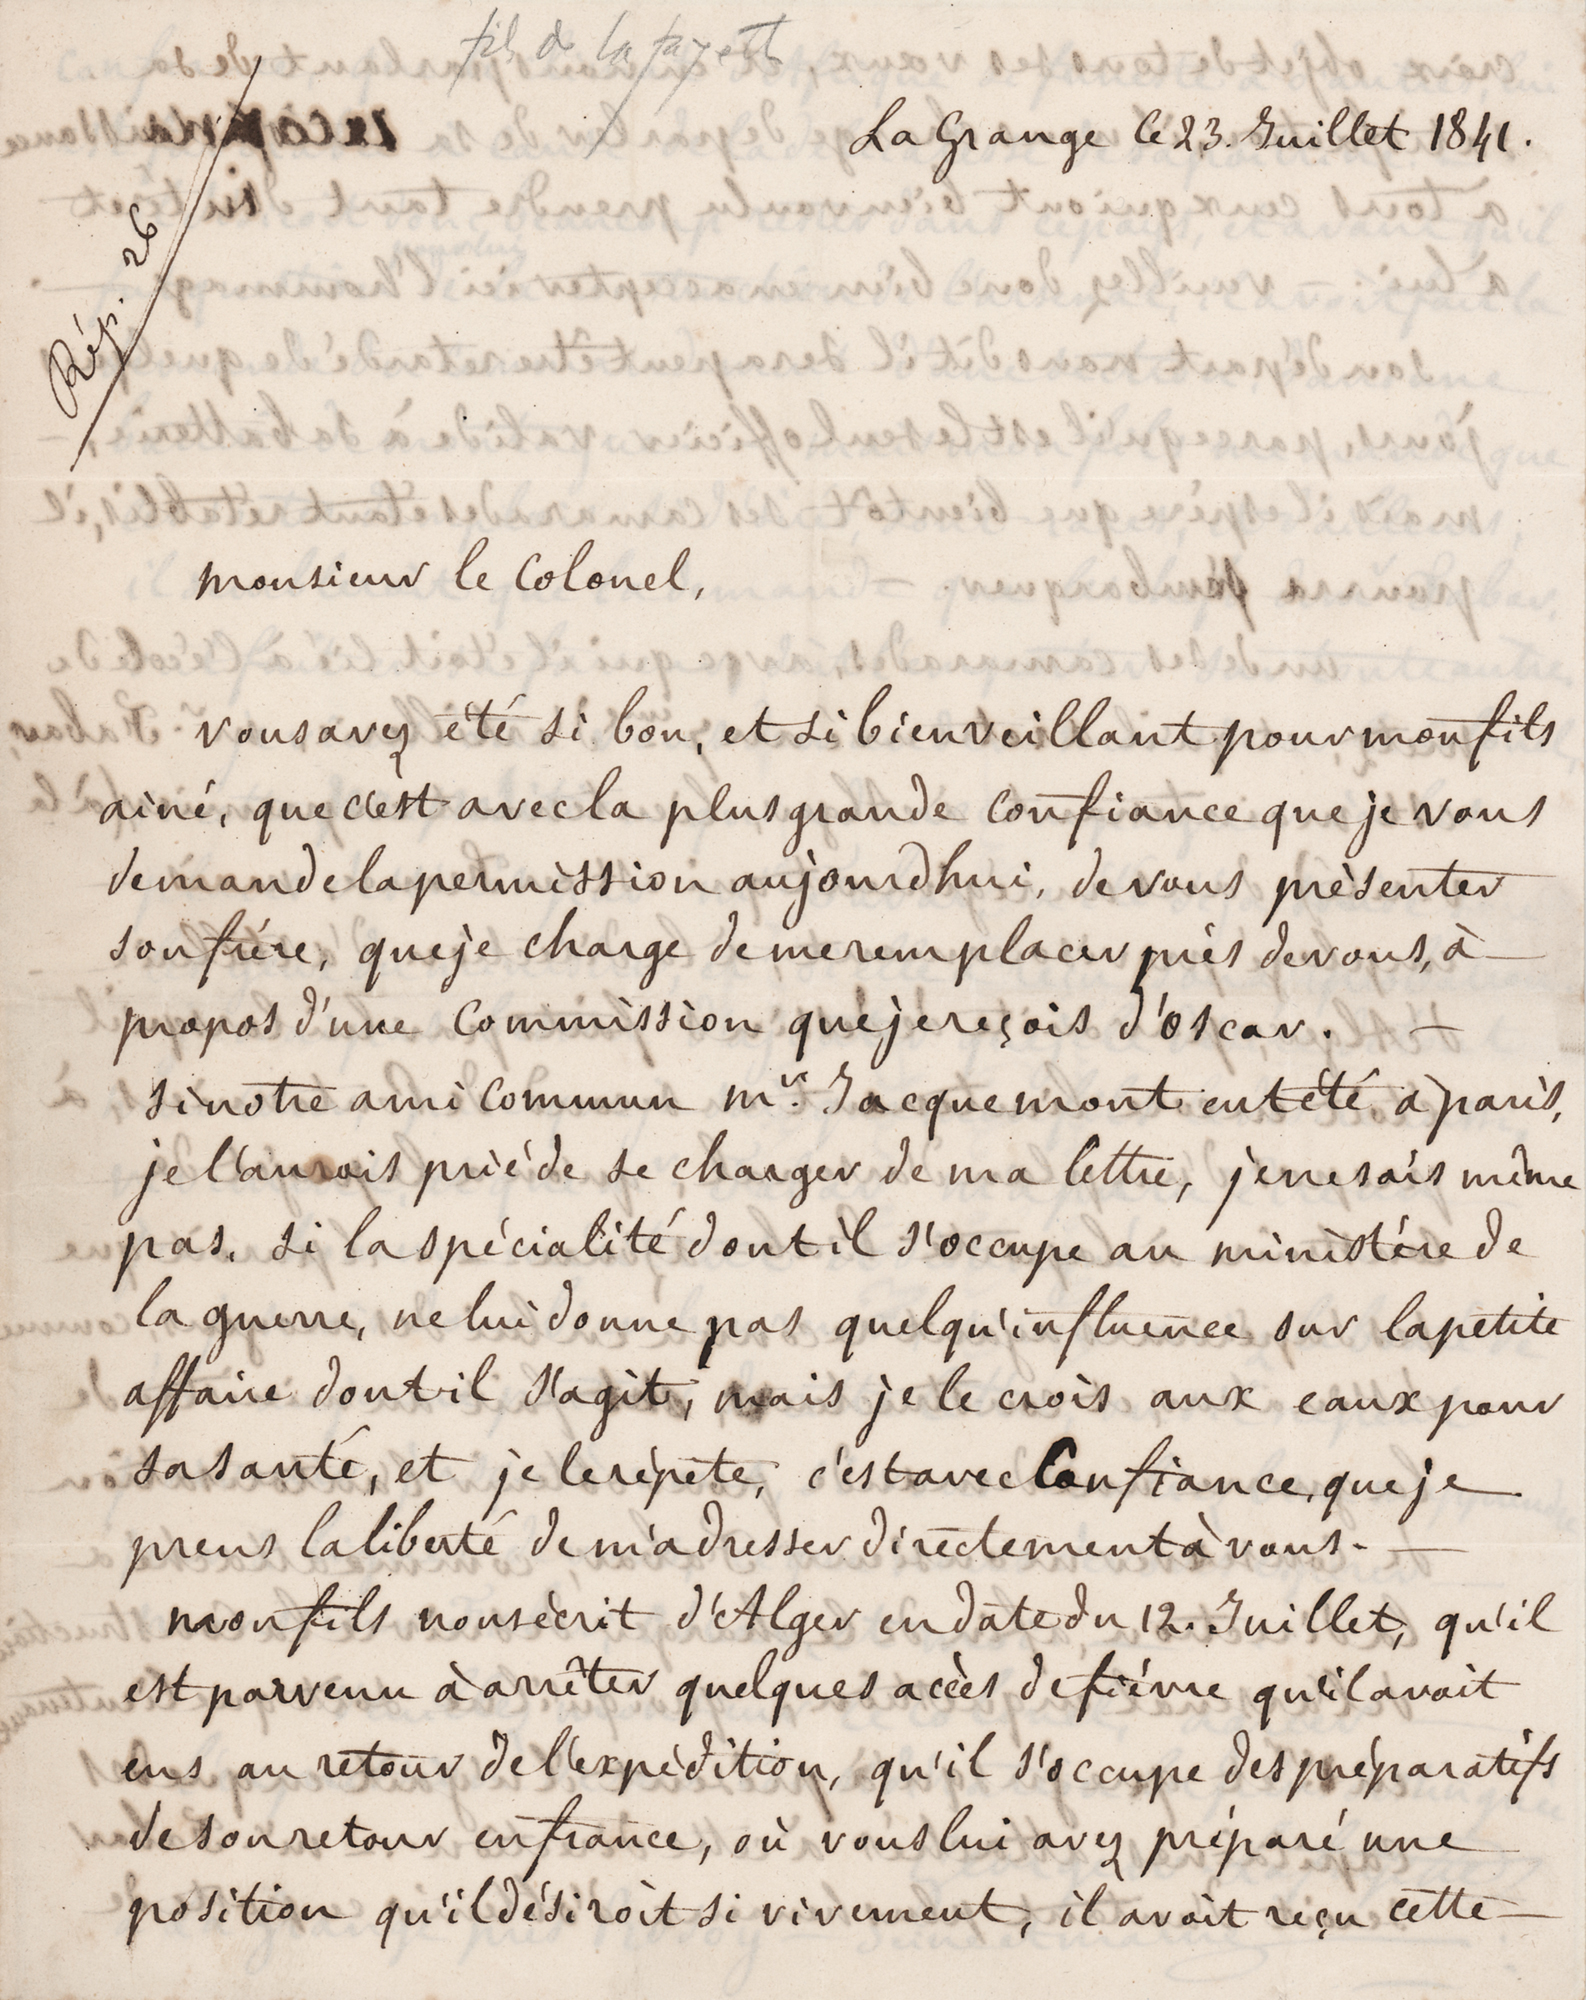 fils de Lafayette
La Grange le 23. Juillet 1841.
Rép. 26
monsieur le Colonel,
vous avez été si bon, et si bienveillant pour mon fils
ainé, que c'est avec la plus grande confiance que je vous
demande la permission aujourdhui, de vous présenter
son frére, que je charge de me remplacer près de vous, à
propos d'une Commission que je reçois d'oscar. —
si notre ami Commun mr. Jacquemont eut été à paris,
je l'aurois prié de se charger de ma lettre, je ne sais même
pas, si la spécialité dont il s'occupe au ministére de
la guerre, ne lui donne pas quelqu'influence sur la petite
affaire dont il s'agit, mais je le crois aux eaux pour
sa santé, et je le répéte, c'est avec Confiance, que je
prens la liberté de m'adresser directement à vous. —
mon fils nous écrit d'Alger en date du 12. Juillet, qu'il
est parvenu à arrêter quelques accès de fiévre qu'il avoit
eus au retour de l'expédition, qu'il s'occupe des préparatifs
de son retour en france, où vous lui avez préparé une
position qu'il désiroit si vivement, il avoit reçu cette —